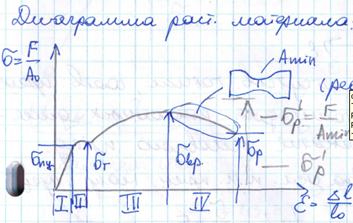 Диаграмма раст. материала.
σ = F/A₀
Amin
σ'р = F/Amin
σпц
σт
σвр.
σр
σ'р
I II III IV
ε = Δl/l₀